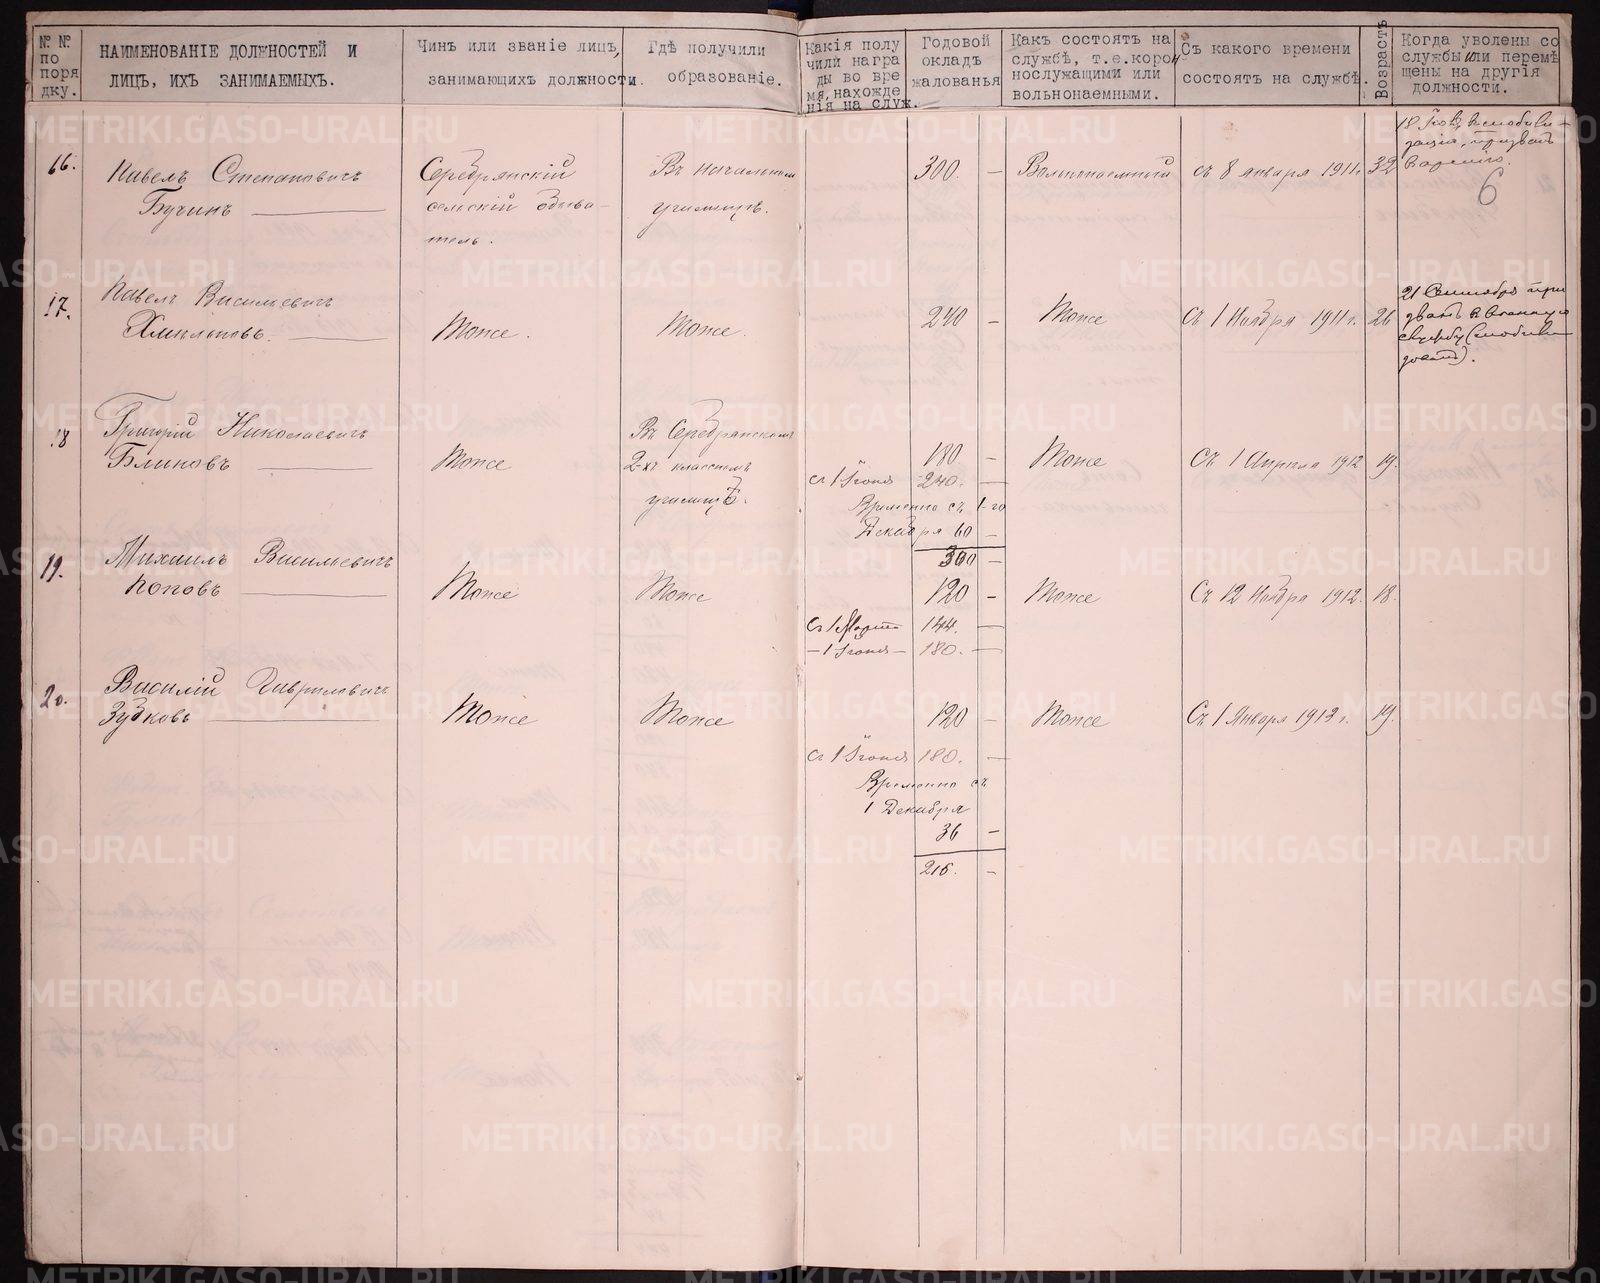 № №
по
поря
дку.
НАИМЕНОВАНІЕ ДОЛЖНОСТЕЙ И
ЛИЦЪ, ИХЪ ЗАНИМАЕМЫХЪ.
Чинъ или званіе лицъ,
занимающихъ должности.
Гдѣ получили
образованіе.
Какія полу
чили награ
ды во вре
мя, нахожде
нія на служ.
Годовой
окладъ
жалованья
Какъ состоятъ на
службѣ, т.е.корон
нослужащими или
вольнонаемными.
Съ какого времени
состоятъ на службѣ.
Возрастъ
Когда уволены со
службы или перемѣ
щены на другія
должности.
16.
Павелъ Степановичъ
Бучинъ
Серебрянскій
сельскій обыва-
тель.
Въ начальномъ
училищѣ.
300. —
Вольнонаемный
съ 8 января 1911г.
32
призванъ
6
17.
Павелъ Васильевичъ
Хмѣльновъ.
Тоже.
Тоже.
240 —
Тоже
Съ 1 Ноября 1911 г.
26
21 Сентября при
званъ
18
Григорій Николаевичъ
Блиновъ
Тоже
Въ Серебрянскомъ
2-хъ классномъ
училищѣ.
180 —
съ 1 Іюня 240. —
Временно съ 1-го
Декабря 60 —
300 —
Тоже
Съ 1 Апрѣля 1912
19.
19.
Михаилъ Васильевичъ
Поповъ
Тоже
Тоже
120 —
Съ 1 Марта 144. —
— 1 Іюня — 180. —
Тоже
Съ 12 Ноября 1912.
18.
20.
Василій Гавриловичъ
Зубковъ
Тоже
Тоже
120 —
съ 1 Іюня 180. —
Временно съ
1 Декабря
36 —
216. —
Тоже
Съ 1 Января 1913 г.
19.
METRIKI.GASO-URAL.RU